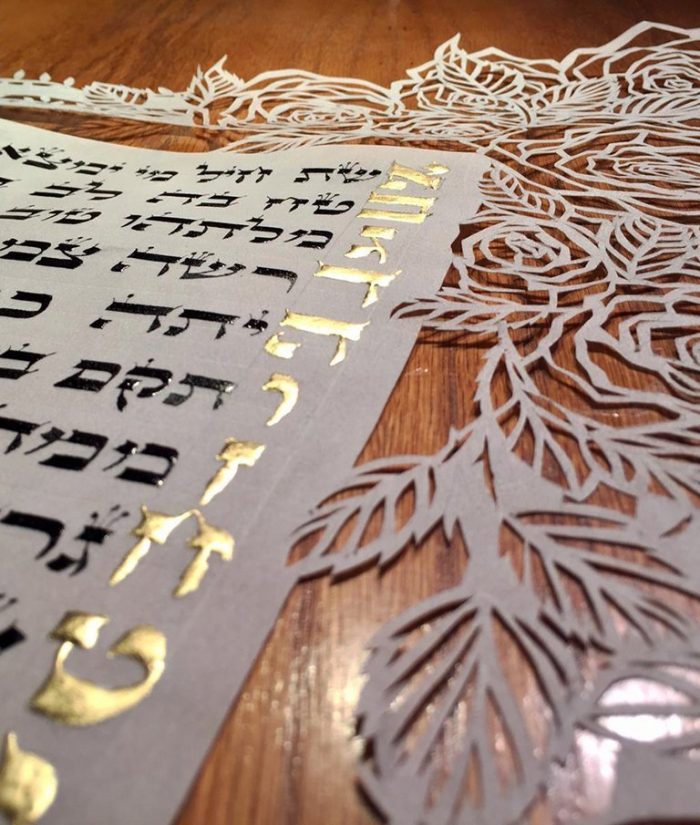 אשת חיל מי ימצא
בטח בה לב
גמלתהו טוב
דרשה
היתה
ותקם
זממה
ח
ט